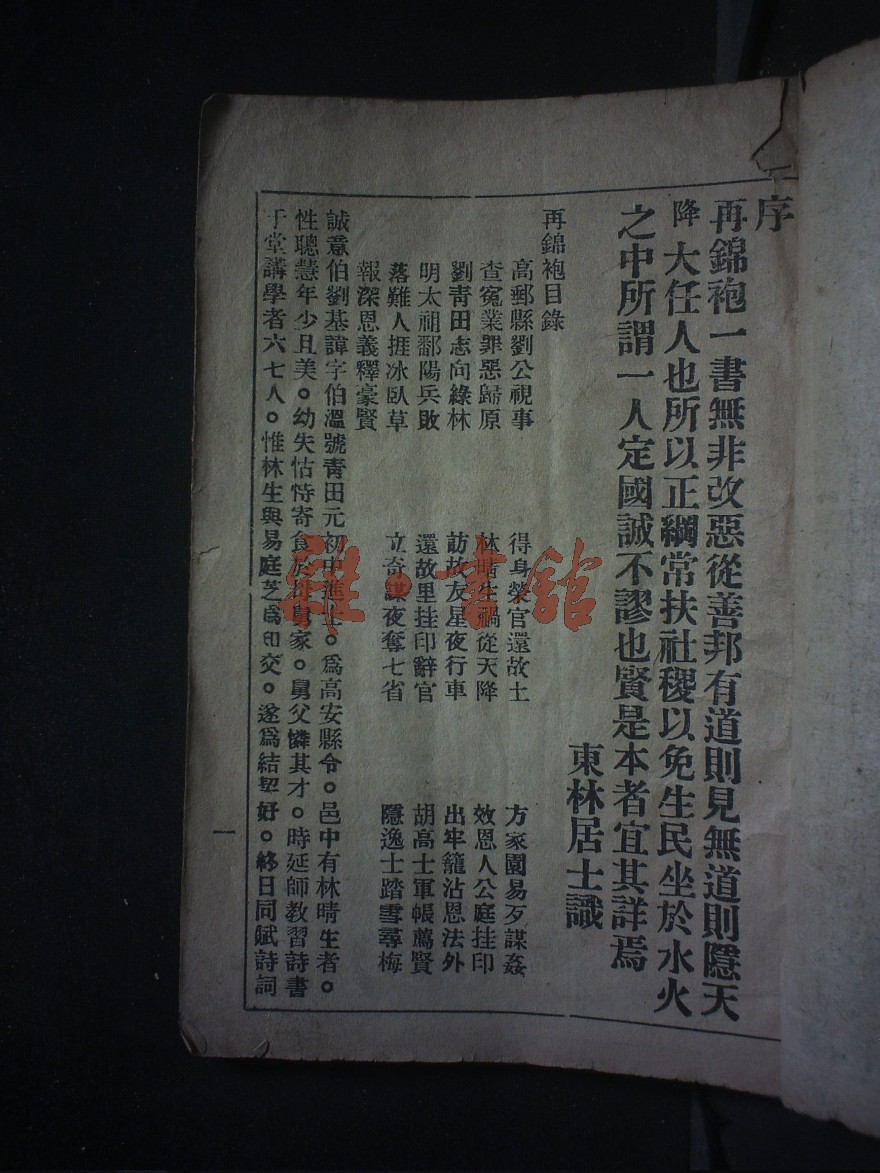 序
再錦袍一書無非改惡從善邦有道則見無道則隱天
降大任人也所以正綱常扶社稷以免生民坐於水火
之中所謂一人定國誠不謬也賢是本者宜其詳焉
東林居士識
再錦袍目錄
高郵縣劉公視事 得身榮官還故土 方家園易歹謀姦
查冤業罪惡歸原 林晴生禍從天降 效恩人公庭挂印
劉青田志向綠林 訪故友星夜行車 出牢籠沾恩法外
明太祖鄱陽兵敗 還故里挂印辭官 胡高士軍帳薦賢
落難人捱冰臥草 立奇謀夜奪七省 隱逸士踏雪尋梅
報深恩義釋豪賢
誠意伯劉基諱字伯溫號青田元初中進士。爲高安縣令。邑中有林晴生者。
性聰慧年少且美。幼失怙恃寄食於母舅家。舅父憐其才。時延師教習詩書
于堂講學者六七人。惟林生與易庭芝爲知交。遂爲結契好。終日同賦詩詞
一
雜·書館